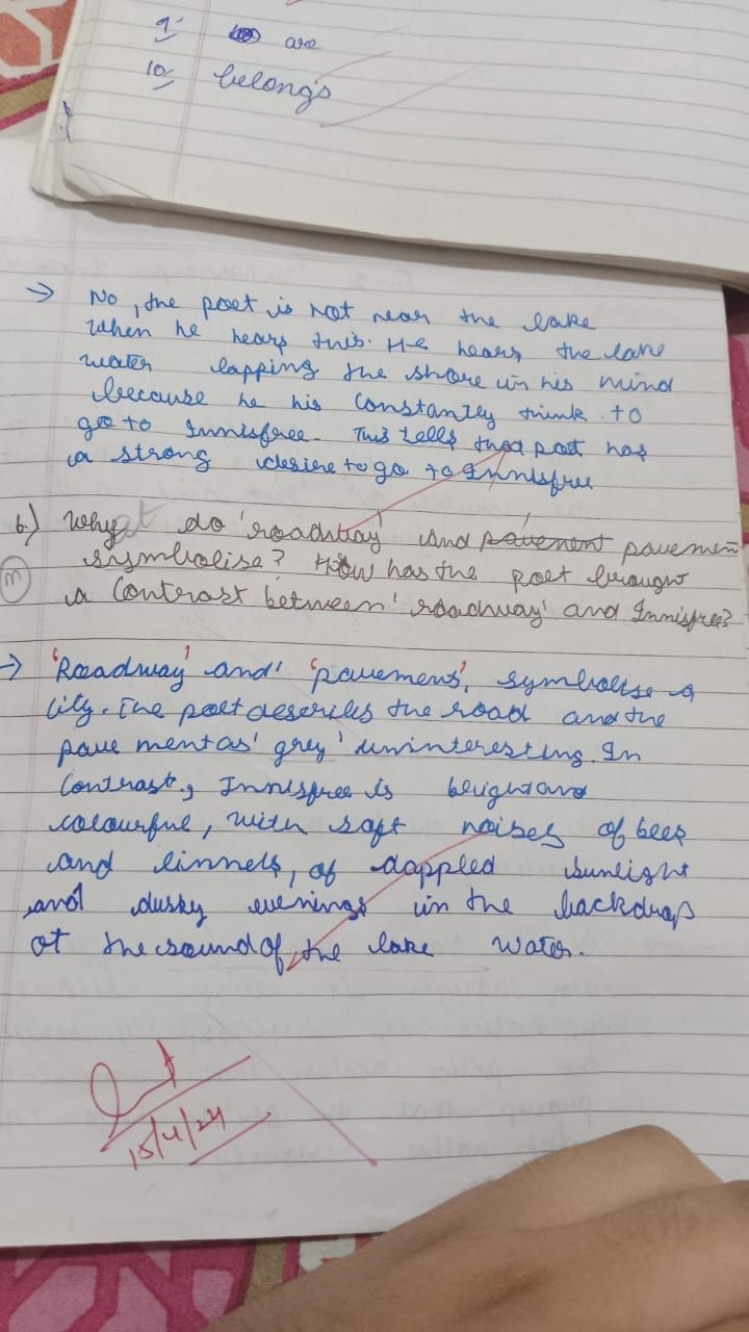 9. are
10. belongs
→ No, the poet is not near the lake
when he hears this. He hears the lake
water lapping the shore in his mind
because he his constantly think to
go to Innisfree. This tells that poet has
a strong desire to go to Innisfree
6.) What do 'roadway' and pavement pavemen
symbolise? How has the poet brough
a Contrast between 'roadway' and Innisfree?
→ 'Roadway' and 'pavement', symbolise a
city. The poet describes the road and the
pavement as 'grey' uninteresting. In
Contrast, Innisfree is bright and
colourful, with soft noises of bees
and linnets, of dappled sunlight
and dusky evenings in the backdrop
of the sound of the lake water.
15/4/24